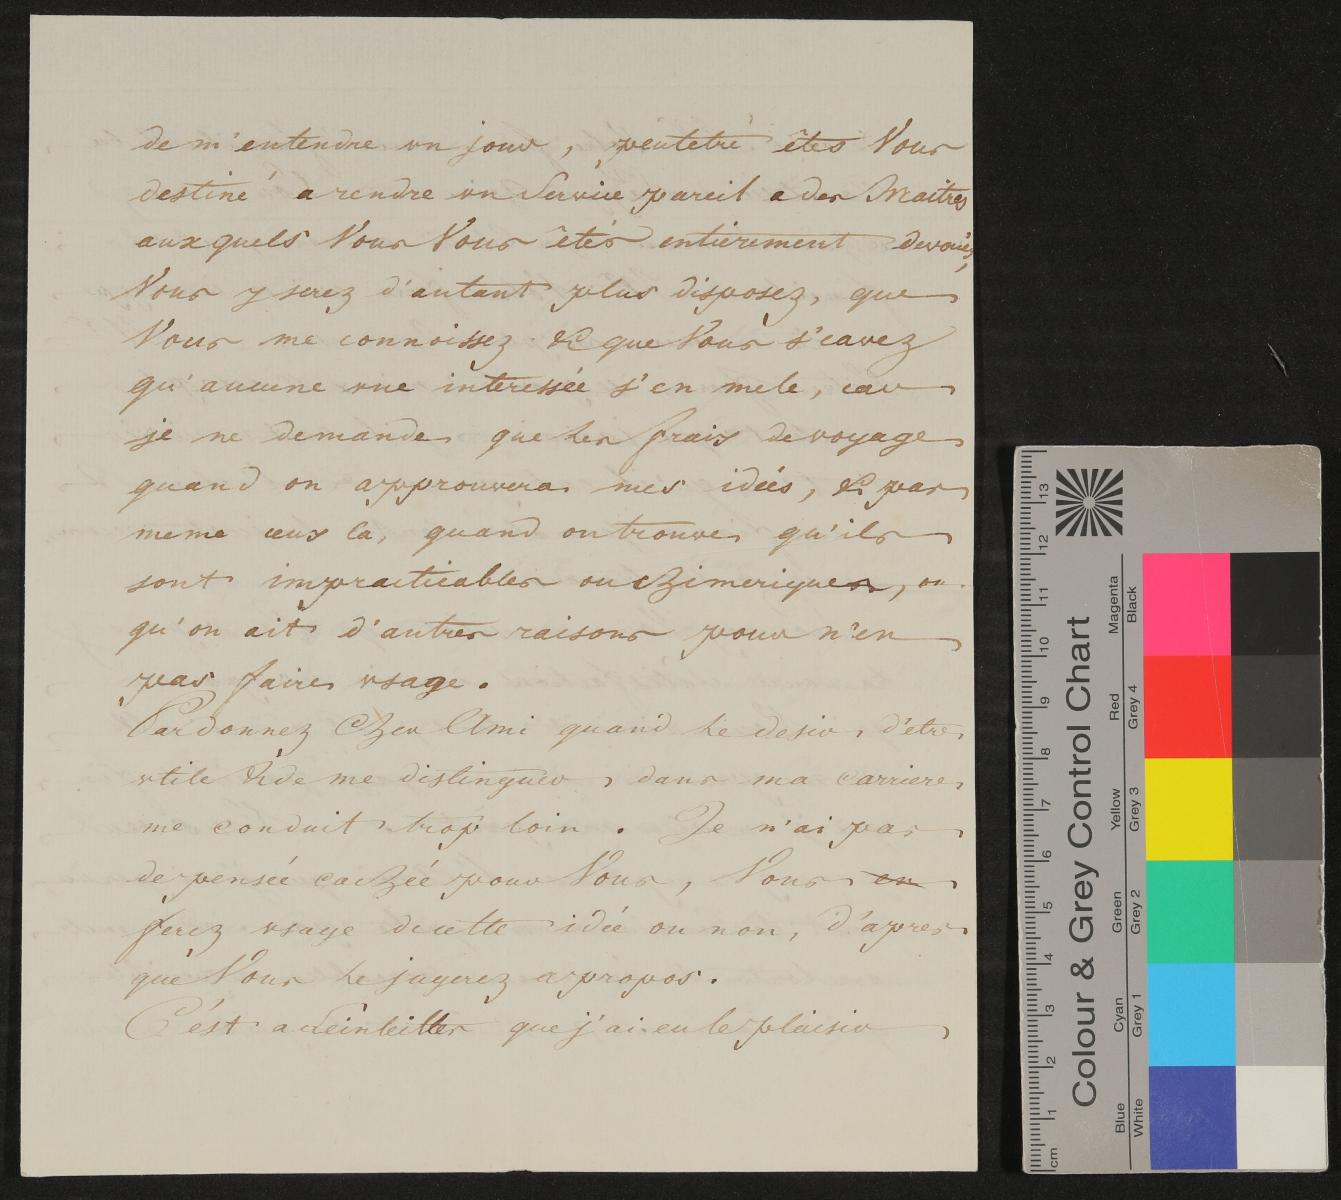 de m'entendre un jour, peutetre êtes Vous
destiné a rendre un Service pareil a des Maitres
aux quels Vous Vous êtes entierement devouéz,
Vous y serez d'autant plus disposez, que
Vous me connoissez & que Vous s'cavez
qu'aucune vue interessée s'en mele, car
je ne demande que les frais de voyage
quand on approuvera mes idées, & pas
meme ceux la, quand on trouve qu'ils
sont impracticables ou chimeriques, ou
qu'on ait d'autres raisons pour n'en
pas faire usage.
Pardonnez Cher Ami quand le desir d'être
utile & de me distinguer, dans ma carriere
me conduit trop loin. Je n'ai pas
de pensée cachée pour Vous, Vous en
ferez usage de cette idée ou non, d'apres
que Vous le jugerez apropos.
C'est a que j'ai eu le plaisir
13
12
11
10
9
8
7
6
5
4
3
2
1
cm
Colour & Grey Control Chart
Magenta
Black
Red
Grey 4
Yellow
Grey 3
Green
Grey 2
Cyan
Grey 1
Blue
White